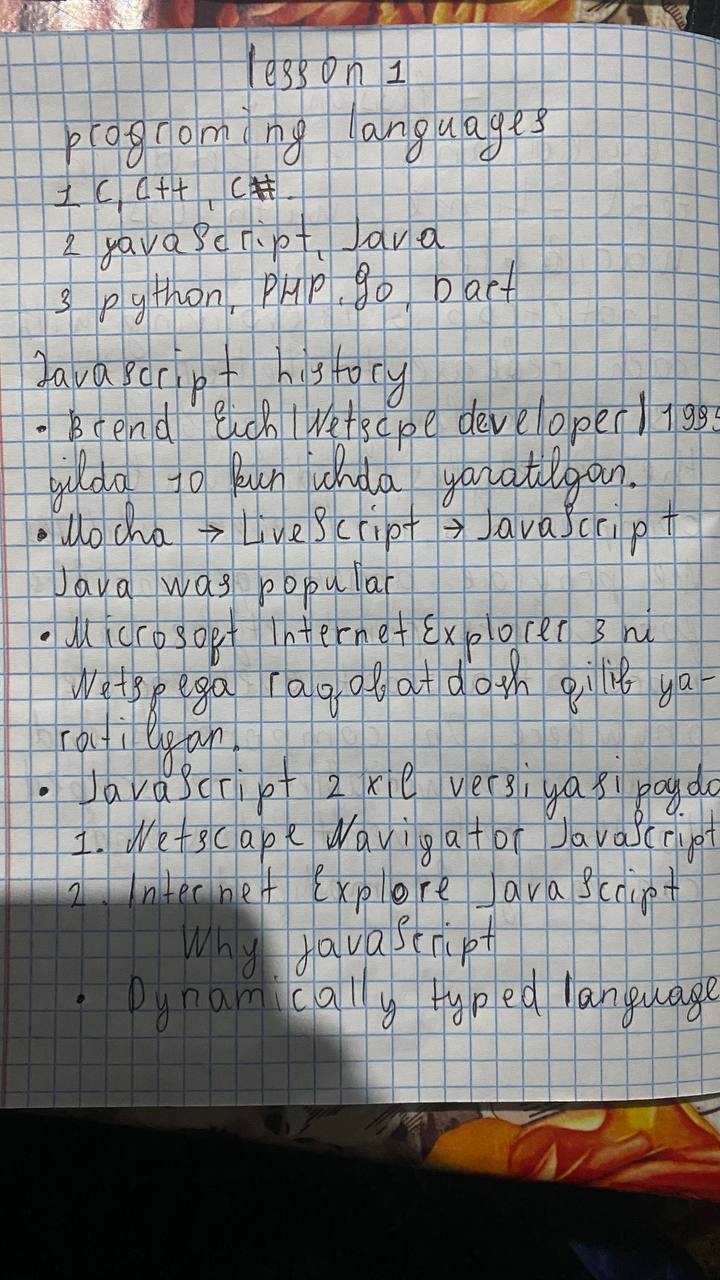 lesson 1
progroming languages
1 C, C++, C#.
2 yavaScript, Java
3 python, PHP, go, Dart
Javascript history
• Brend Eich (Netscpe developer) 1995
yilda 10 kun ichda yaratilgan.
• Mocha → LiveScript → JavaScript
Java was popular
• Microsoft Internet Explorer 3 ni
Netspega raqobatdosh qilib ya-
ratilgan.
• JavaScript 2 xil versiyasi paydo
1. Netscape Navigator JavaScript
2. Internet Explore JavaScript
Why javaScript
• Dynamically typed language